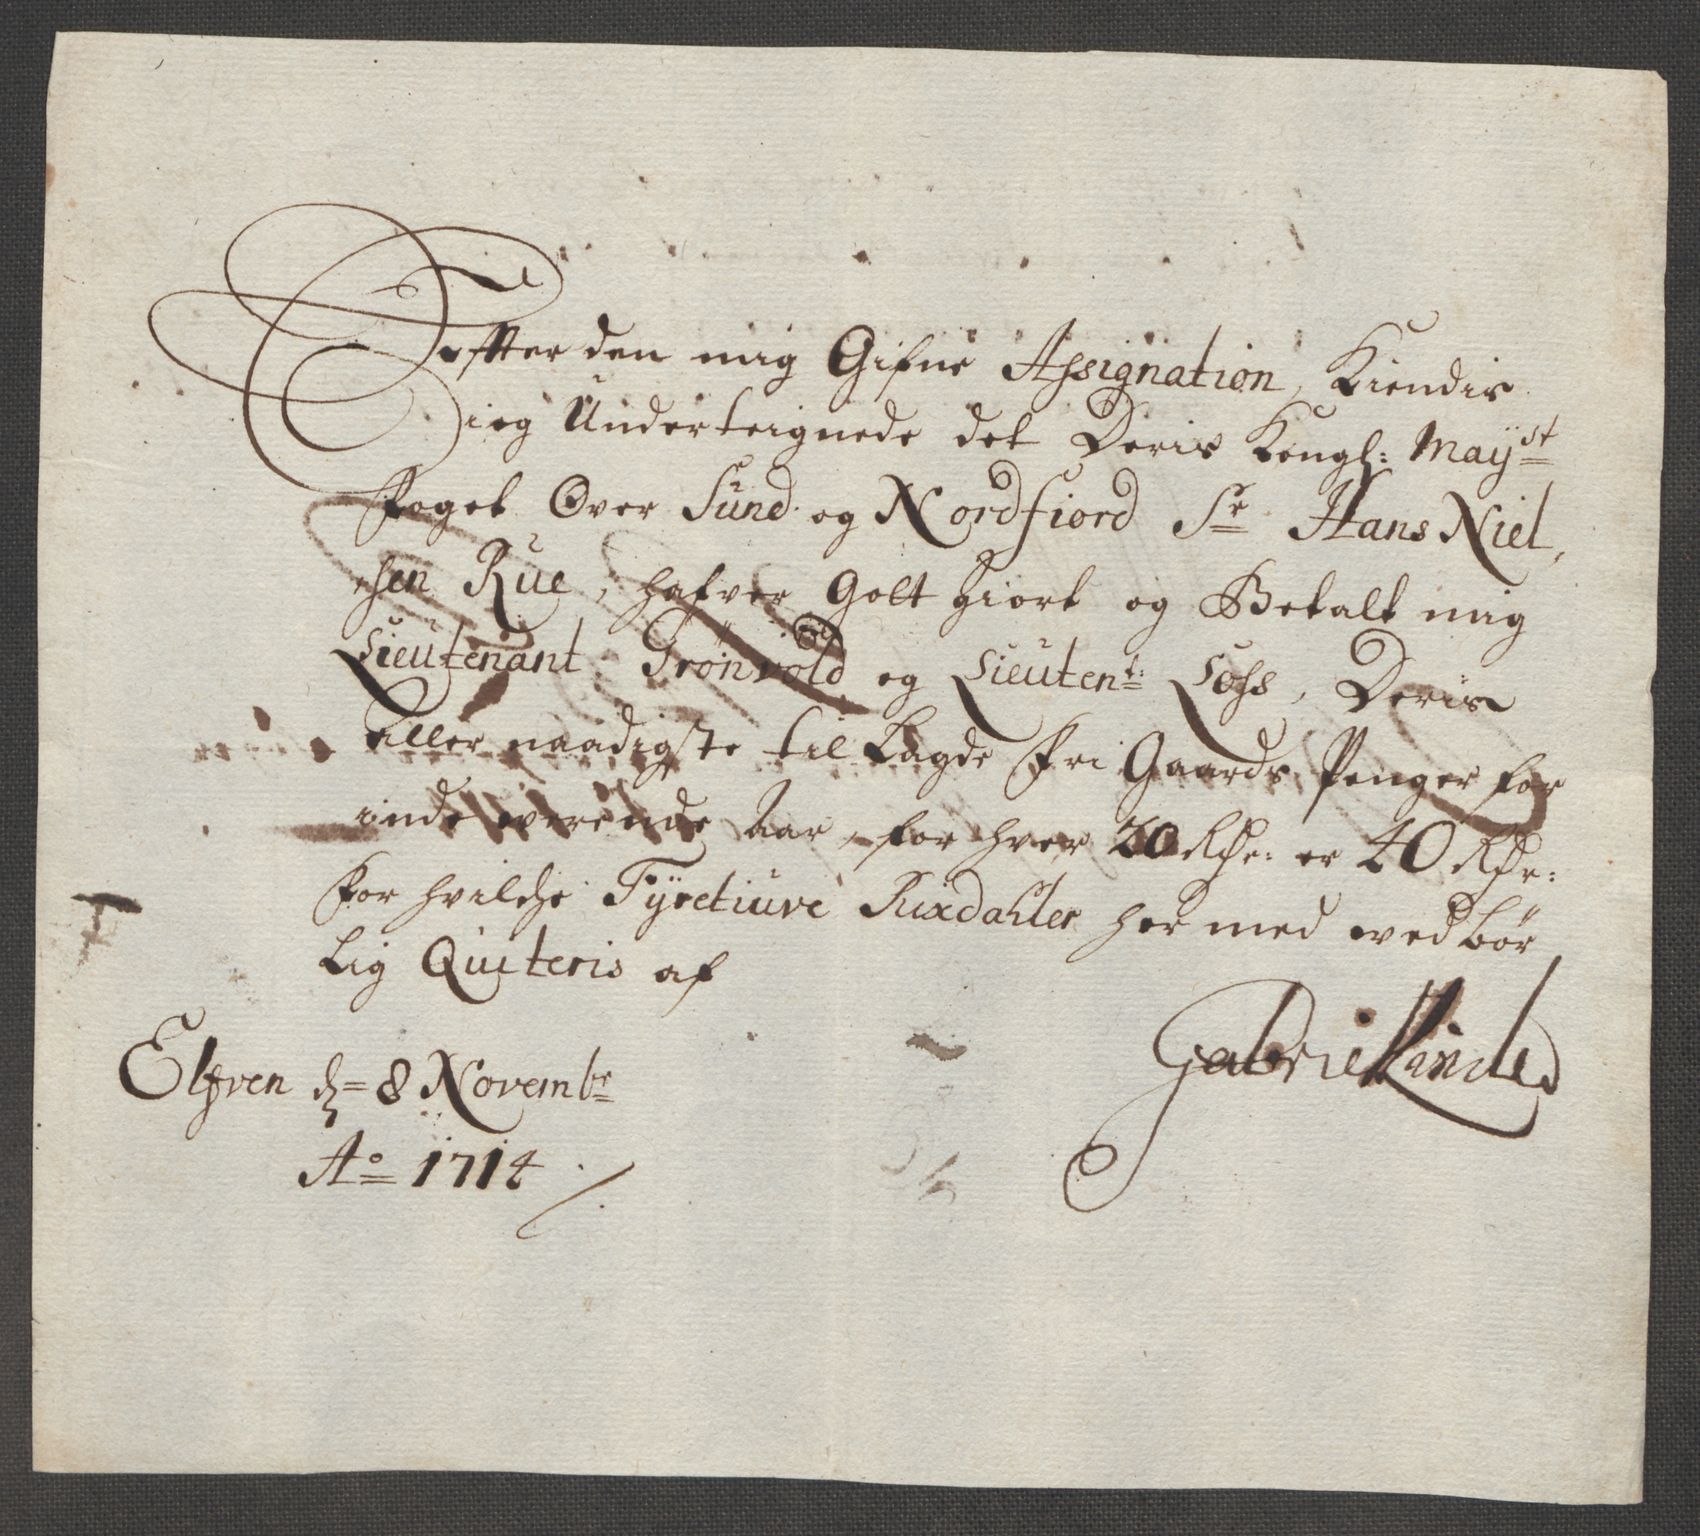 Effter den mig Gifne Assignation, Kiendis
ieg Underteignede det Deris Kongl: Mayst
Foget Over Sund og Nordfiord Sr Hans Niel,
sen Rue, hafver Golt giort og Betalt mig
Lieutenant Grönvold og Lieutent: Loss, Deris
aller naadigste til Lagde Fri Gaards Penger for
inde werende Aar, for hver 20 Rdr: er 40 Rdr:
For hvilche Fÿretiuve Rixdahler her med ved bør
Lig Quiteris af
Elfven d= 8 Novembr
Ao 1714